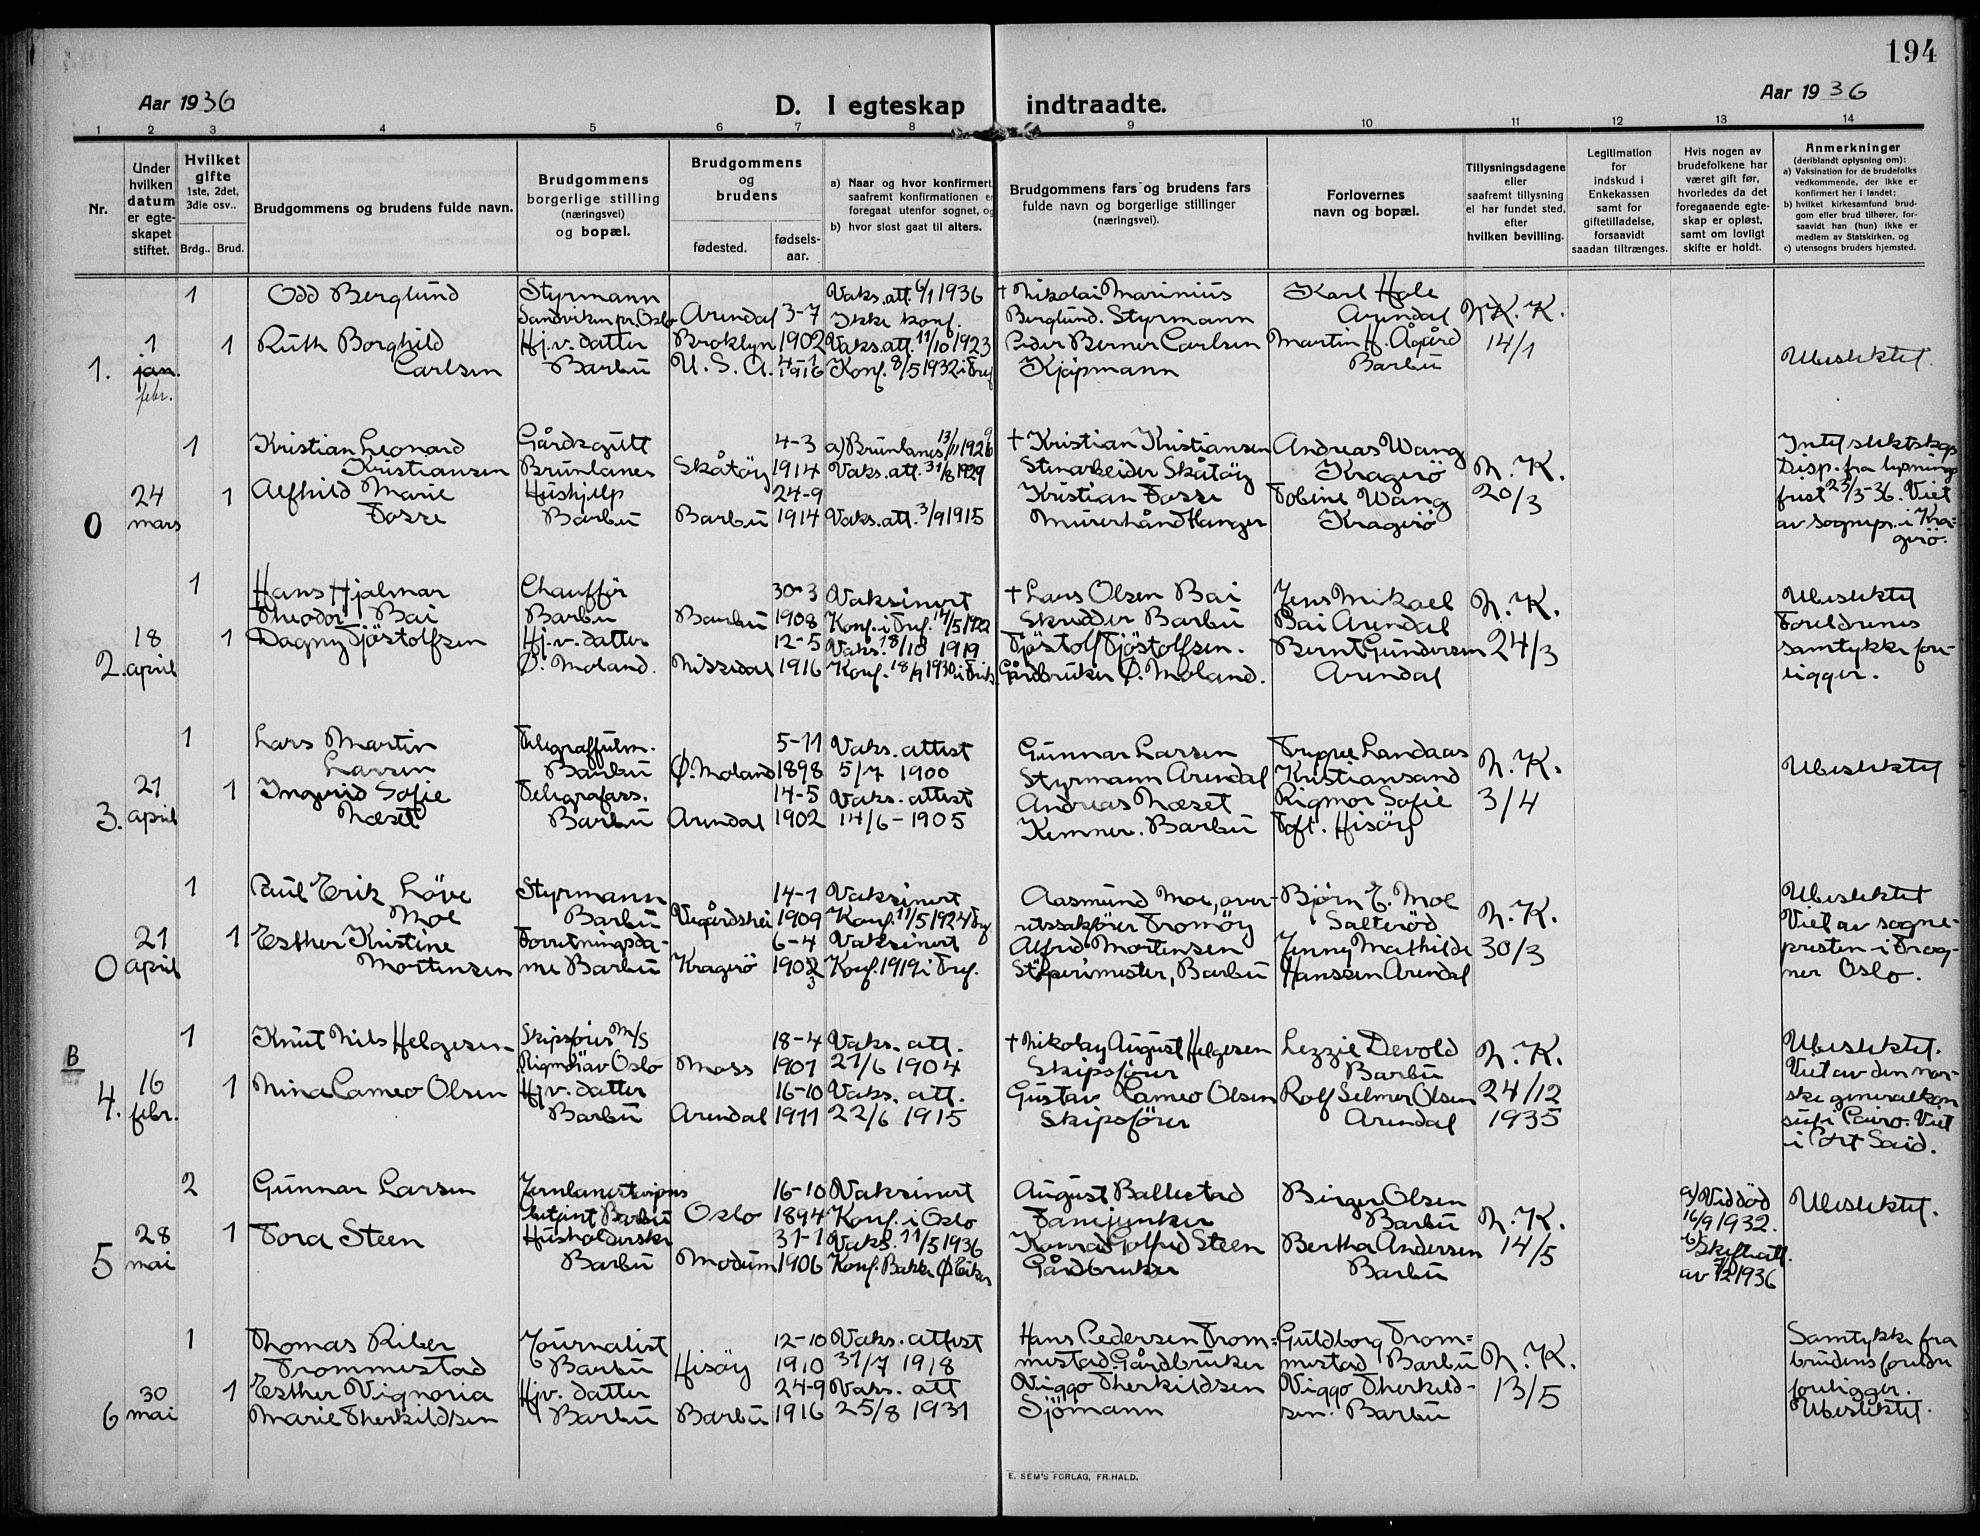 194
Aar 1936
D. I egteskap indtraadte.
Aar 1936
1 2 3 4 5 6 7 8 9 10 11 12 13 14
Nr.
Under hvilken datum er egteskapet stiftet.
Hvilket gifte
1ste, 2det, 3die osv..
Brdg.. Brud.
Brudgommens og brudens fulde navn.
Brudgommens borgerlige stilling (næringsvei) og bopæl.
Brudgommens og brudens
fødested. fødselsaar.
a) Naar og hvor konfirmert, saafremt konfirmationen er foregaat utenfor sognet, og
b) hvor sidst gaat til alters.
Brudgommens fars og brudens fars fulde navn og borgerlige stillinger (næringsvei).
Forlovernes navn og bopæl.
Tillysningsdagene eller saafremt tillysning ei har fundet sted, efter hvilken bevilling.
Legitimation for indskud i Enkekassen samt for giftetilladelse, forsaavidt saadan tiltrænges.
Hvis nogen av brudefolkene har været gift før, hvorledes da det foregaaende egteskap er opløst, samt om lovligt skifte er holdt.
Anmerkninger
(deriblandt oplysning om):
a) Vaksination for de brudefolks vedkommende, der ikke er konfirmert her i landet;
b) hvilket kirkesamfund brudgom eller brud tilhører, forsaavidt han (hun) ikke er medlem av Statskirken, og
c) utensogns bruders hjemsted.
1. 1 jan. febr.
1 Odd Berglund Styrmann Sandviken pr. Oslo Arendal 3-7 1902 Vaks. att. 6/1 1936 Ikke konf. † Nikolai Marinius Berglund. Styrmann Karl Hole Arendal N.K. 14/1
1 Ruth Borghild Carlsen Hj.v. datter Barbu Broklyn U.S.A. 4-1 1916 Vaks. att. 11/10 1923 Konf. 8/5 1932 i Tref Peder Berner Carlsen Kjöpmann Martin H. Ågård Barbu Ubeslektet.
0 24 mars
1 Kristian Leonard Kristiansen Gårdsgutt Brunlanes Skåtöy 4-3 1914 a) Brunlanes 13/11 1926 Vaks. att. 31/8 1929 † Kristian Kristiansen Stenarbeider Skåtöy Andreas Wang Kragerö N.K. 20/3
1 Alfhild Marie Fosse Hushjelp Barbu Barbu 24-9 1914 Vaks. att. 3/9 1915 Kristian Fosse Murerhåndtlanger Tobine Wang Kragerö
Intet slektskap Disp. fra lysnings frist 23/3-36. Viet av sognepr. i Kragerö.
2. 18 april
1 Hans Hjalmar Theodor Bai Chaufför Barbu Barbu 30-3 1908 Vaksinert Konf. i Tref. 14/5 1922 † Lars Olsen Bai Skredder Barbu Jens Mikael Bai Arendal N.K. 24/3
1 Dagny Tjöstolfsen Hj.v. datter Ø. Moland. Nissedal 12-5 1916 Vaks. 18/10 1919 Konf. 18/9 1930 Tjöstolf Tjöstolfsen. Gårdbruker Ø. Moland. Bernt Gundersen Arendal
Ubeslektet Foreldrenes samtykke foreligger.
3. 21 april
1 Lars Martin Larsen Barbu Ø. Moland 5-11 1898 Vaks. attest 5/7 1900 Gunnar Larsen Styrmann Arendal Trygve Landaas Kristiansand N.K. 3/4
1 Ingrid Sofie Næset Telegrafass. Barbu Arendal 14-5 1902 Vaks. attest 14/6-1905 Andreas Næset Kemner. Barbu Rigmor Sofie Toft. Hisöy
Ubeslektet
0 21 april
1 Paul Erik Löve Moe Styrmann Barbu Vegårdshei 14-1 1909 Vaksinert Konf. 11/5 1924 Tref Aasmund Moe, overretssakförer Tromöy Björn E. Moe Salteröd N.K. 30/3
1 Esther Kristine Mortensen Forretningsdame Barbu Kragerö 6-4 1902 3 Vaksinert Konf. 1919 i Tref. Alfred Mortensen Stöperimester, Barbu Jenny Mathilde Hanssen Arendal
Ubeslektet Viet av sognepresten i Frogner Oslo.
B
4. 16 febr.
1 Knut Nils Helgesen Skipsförer M/S Rigmor av Oslo Moss 18-4 1901 Vaks. att. 21/6 1904 † Nikolay August Helgesen Skipsförer Lezzie Devold Barbu N.K. 24/12 1935
1 Nina Cameo Olsen Hj.v. datter Barbu Arendal 16-10 1911 Vaks. att. 22/6 1915 Gustav Cameo Olsen Skipsförer Rolf Selmer Olsen Arendal
Ubeslektet. Viet av den norske generalkonsul i Cairo. Viet i Port Said.
5 28 mai
2 Gunnar Larsen Barbu Oslo 16-10 1894 Vaksinert Konf. i Oslo August Ballestad Fanejunker Birger Olsen Barbu N.K. 14/5
1 Tora Steen Husholderske Barbu Modum 31-1 1906 Vaks. 11/5 1936 Konf. Bakke Ø. Eiker Konrad Gotfred Steen Gårdbruker Bertha Andersen Barbu
a) Ved död 16/9 1932. b) Skifteatt. av 7/2 1936 Ubeslektet.
6 30 mai
1 Thomas Riber Trommestad Journalist Barbu Hisöy 12-10 1910 Vaks. attest 31/7 1918 Hans Pedersen Trommestad. Gårdbruker Guldborg Trommestad Barbu N.K. 13/5
1 Esther Vignoria Marie Therkildsen Hjv. datter Barbu Barbu 24-9 1916 Vaks. att 25/8 1931 Viggo Therkildsen Sjömann Viggo Therkildsen. Barbu
Samtykke fra brudens foreldre foreligger. Ubeslektet.
E. SEM'S FORLAG, FR.HALD.